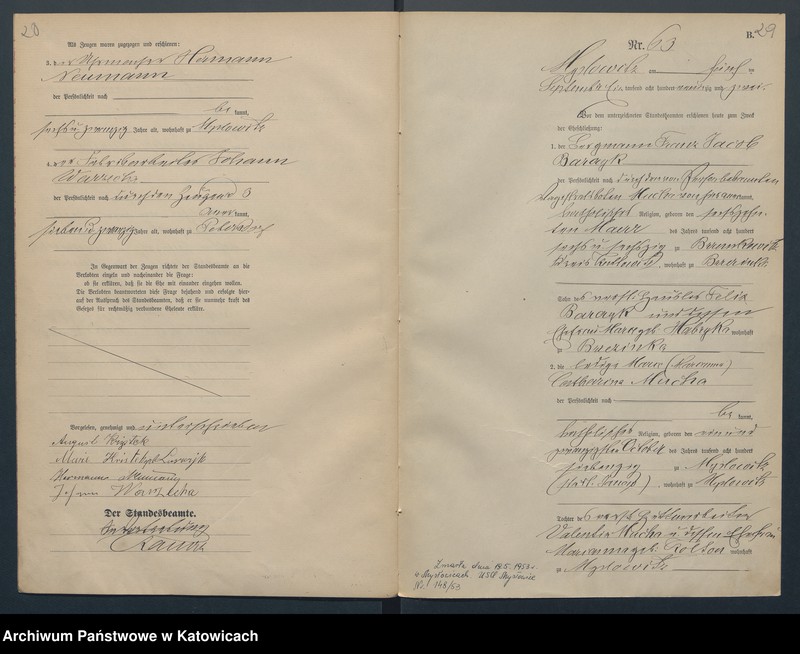 28
Als Zeugen waren zugezogen und erschienen:
3. der Uhrmacher Hermann
Neumann
der Persönlichkeit nach
be kannt,
sechs u zwanzig Jahre alt, wohnhaft zu Myslowitz
4. der Johann
Warzecha
der Persönlichkeit nach durch den Zeugen 3
kannt,
sieben u zwanzig Jahre alt, wohnhaft zu
In Gegenwart der Zeugen richtete der Standesbeamte an die
Verlobten einzeln und nacheinander die Frage:
ob sie erklären, daß sie die Ehe mit einander eingehen wollen.
Die Verlobten beantworteten diese Frage bejahend und erfolgte hier-
auf der Ausspruch des Standesbeamten, daß er sie nunmehr kraft des
Gesetzes für rechtmäßig verbundene Eheleute erkläre.
Vorgelesen, genehmigt und unterschrieben
August
Marie
Hermann Neumann
Johann Warzecha
Der Standesbeamte.
In Vertretung
B. 29
Nr. 63
Myslowitz am fünf ten
September tausend acht hundert neunzig und zwei
Vor dem unterzeichneten Standesbeamten erschienen heute zum Zweck
der Eheschließung:
1. der Bergmann Franz Jacob
Baragk
der Persönlichkeit nach durch den von Person bekannten
Mucha kannt,
katholischer Religion, geboren den sechszehn-
ten Maerz des Jahres tausend acht hundert
sechs u sechszig zu
Kreis Kattowitz, wohnhaft zu Brzezinka
Sohn des Felix
Baragk und dessen
Ehefrau wohnhaft
zu Brzezinka
2. die ledige Marie
Catharine Mucha
der Persönlichkeit nach
be kannt,
katholischer Religion, geboren den ein und
zwanzigsten October des Jahres tausend acht hundert
siebenzig zu Myslowitz
, wohnhaft zu Myslowitz
Tochter des
Valentin Mucha u dessen Ehefrau
wohnhaft
zu Myslowitz
Zmarła dnia 18.5.1953 r.
w Mysłowicach USC Mysłowice
Nr. 148/53
Archiwum Państwowe w Katowicach